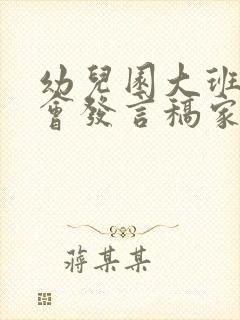 幼兒園大班
會發言稿家
蔣某某